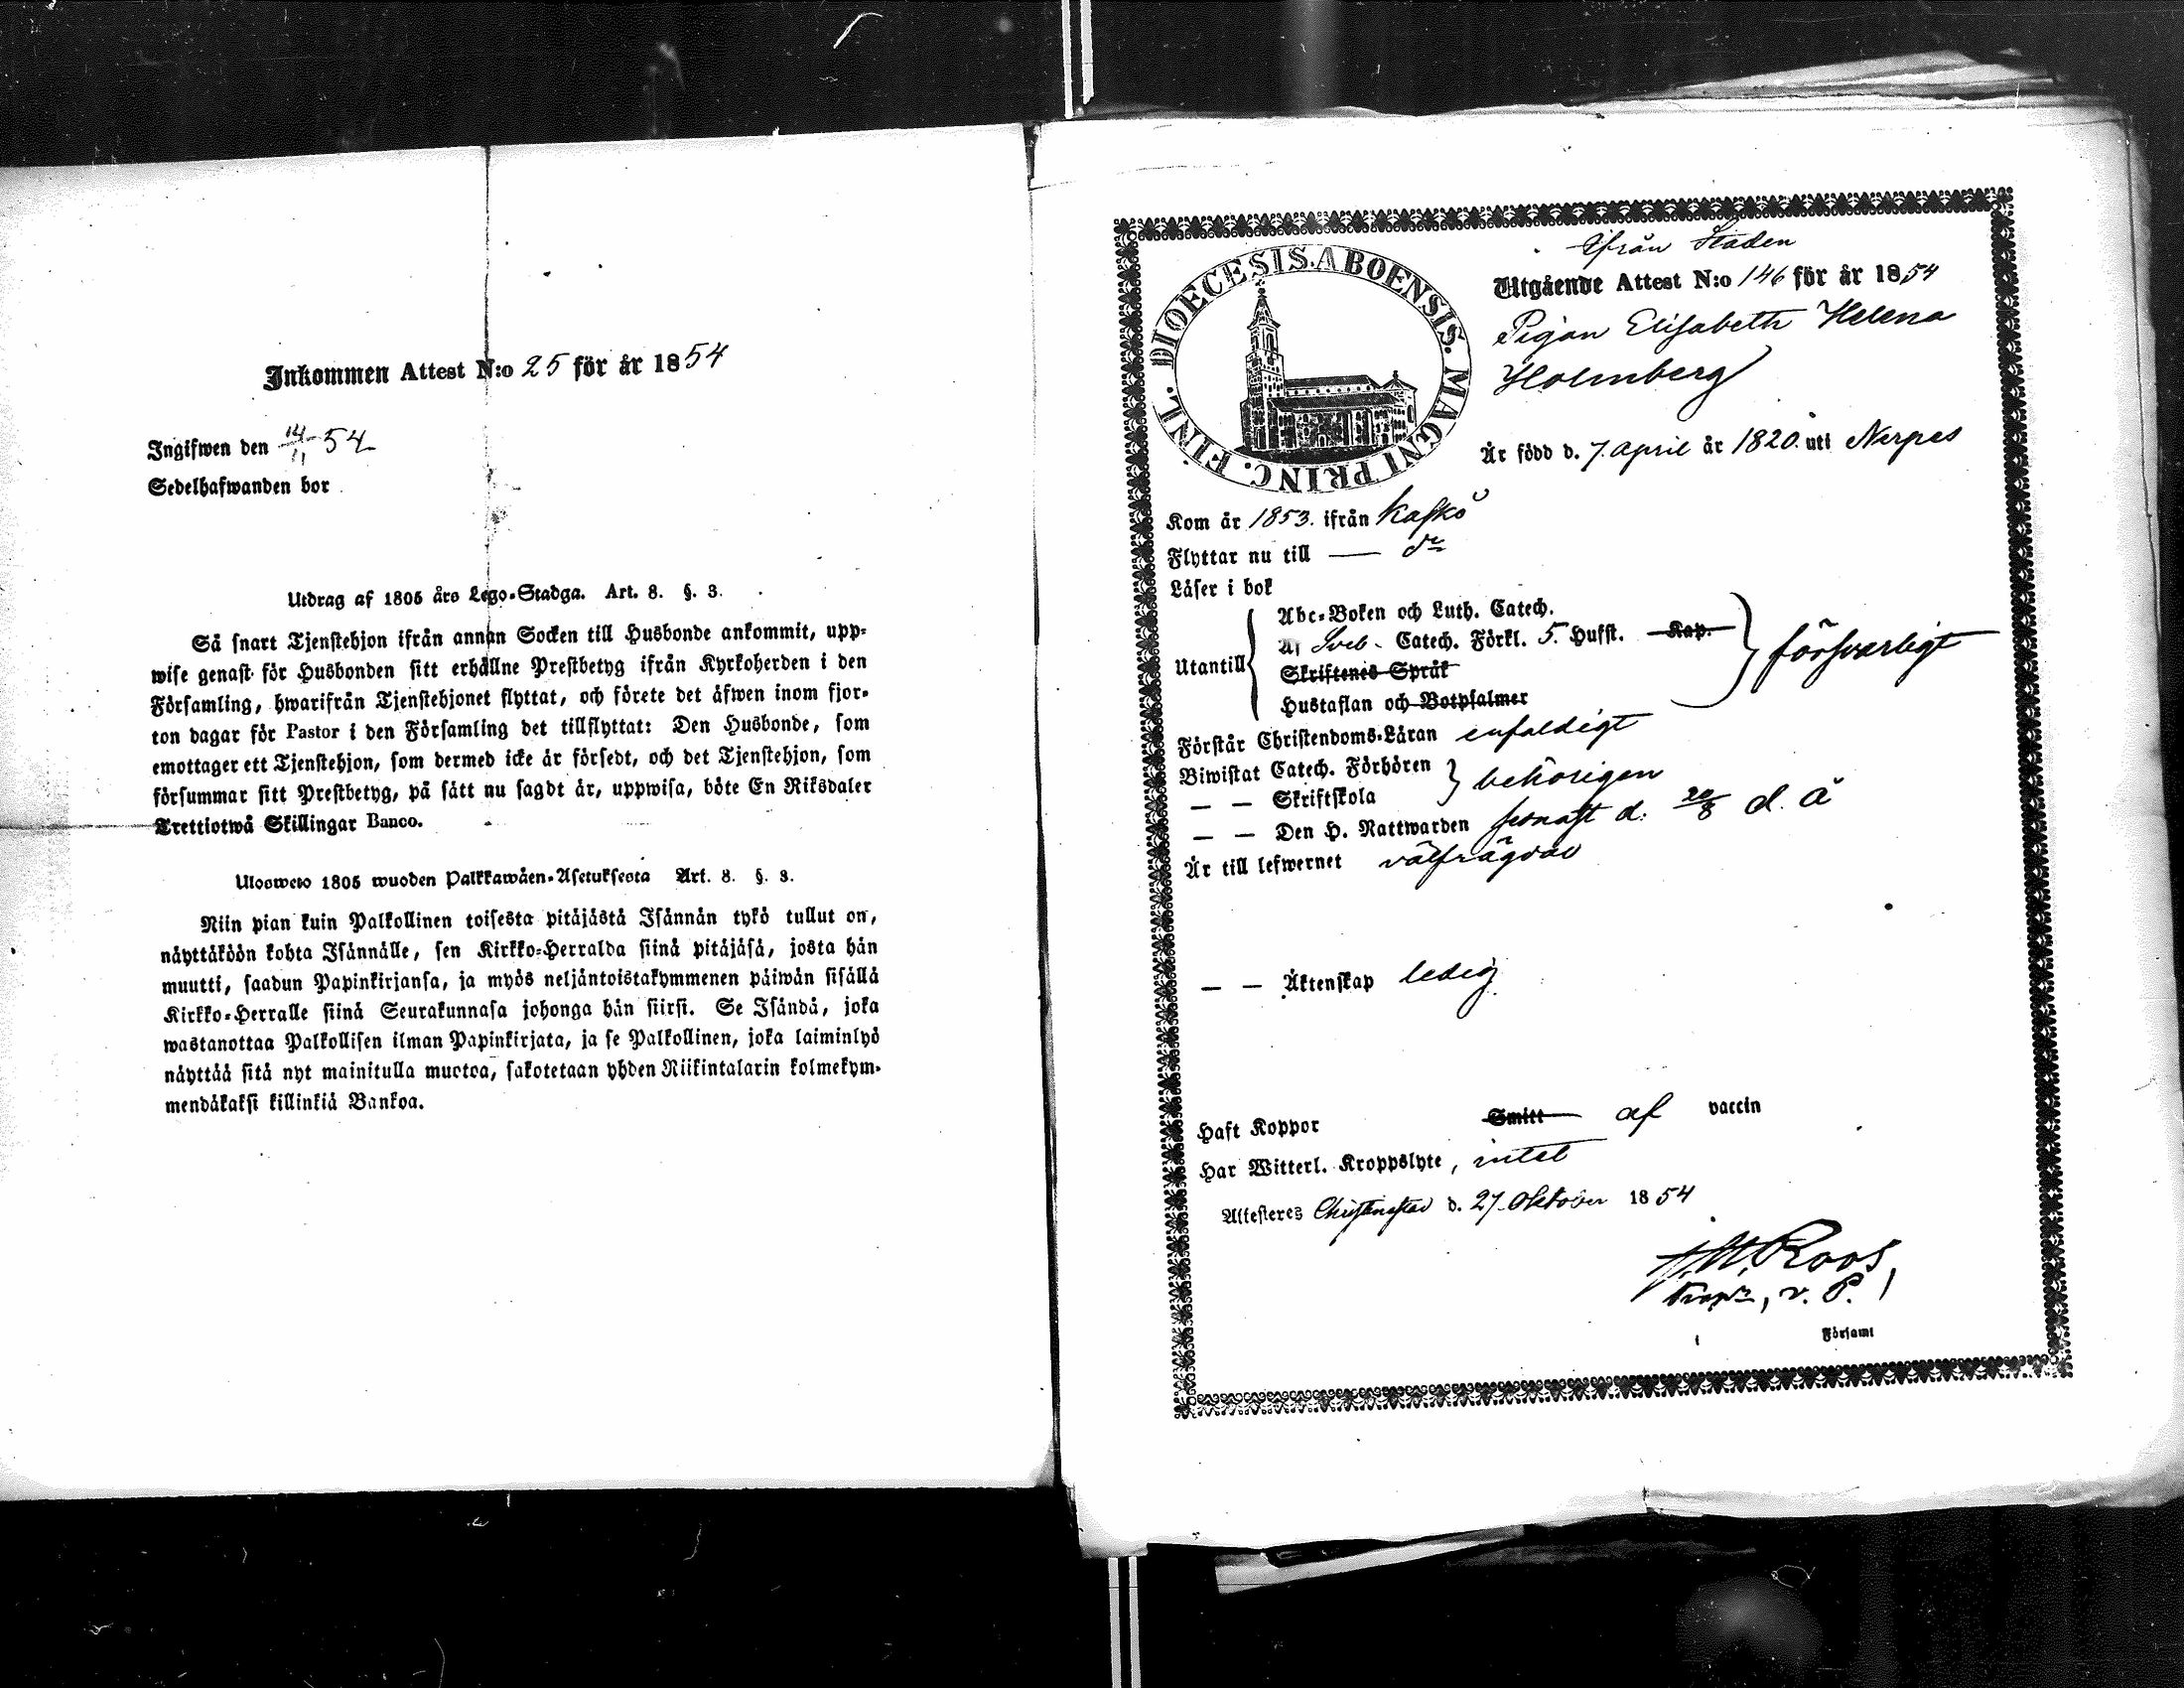 Inkommen Attest N:o 25 för år 1854
Ingifwen den 14/11 54
Sedelhafwanden bor
Utdrag af 1805 års Lego-Stadga. Art. 8. §. 3.
Så snart Tjenstehjon ifrån annan Socken till Husbonde ankommit, upp-
wise genast för Husbonden sitt erhållne Prestbetyg ifrån Kyrkoherden i den
Församling, hwarifrån Tjenstehjonet flyttat, och förete det äfwen inom fjor-
ton dagar för Pastor i den Församling det tillflyttat: Den Husbonde, som
emottager ett Tjenstehjon, som dermed icke är försedt, och det Tjenstehjon, som
försummar sitt Prestbetyg, på sätt nu sagdt är, uppwisa, böte En Riksdaler
Trettiotwå Skillingar Banco.
Ulosweto 1805 wuoden Palkkawäen-Asetuksesta Art. 8. §. 3.
Niin pian kuin Palkollinen toisesta pitäjästä Isännän tykö tullut on,
näyttäköön kohta Isännälle, sen Kirkko-Herralda siinä pitäjäsä, josta hän
muutti, saadun Papinkirjansa, ja myös neljäntoistakymmenen päiwän sisällä
Kirkko-Herralle siinä Seurakunnasa johonga hän siirsi. Se Isändä, joka
wastanottaa Palkollisen ilman Papinkirjata, ja se Palkollinen, joka laiminlyö
näyttää sitä nyt mainitulla muotoa, sakotetaan yhden Riikintalarin kolmekym-
mendäkaksi killinkiä Bankoa.
DIOECESIS. ABOENSIS. MAGNI PRINC. FINL.
Ifrån Staden
Utgående Attest N:o 146 för år 1854
Pigan Elisabeth Helena
Holmberg
Är född d. 7. April år 1820. uti Nerpes
Kom år 1853. ifrån Kaskö
Flyttar nu till — do
Läser i bok
Utantill
Abc-Boken och Luth. Catech.
Af Sveb. Catech. Förkl. 5. Hufst. Kap.
Skriftenes Språk
Hustaflan och Botpsalmer
försvarligt
Förstår Christendoms-Läran enfaldigt
Biwistat Catech. Förhören
— — Skriftskola
behörigen
— — Den H. Nattwarden senast d. 20/8 d. å
Är till lefwernet välfrägdad
— — Äktenskap ledig
Haft Koppor Smitt af vaccin
Har Witterl. Kroppslyte, intet
Attesteres Christinestad d. 27. Oktober 1854
Roos
v. P.
i Församl